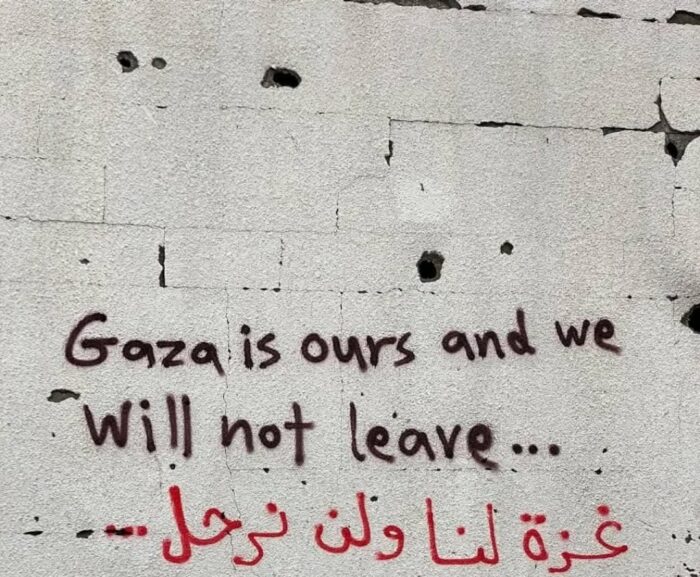 Gaza is ours and we
Will not leave...
غزة لنا ولن نرحل...